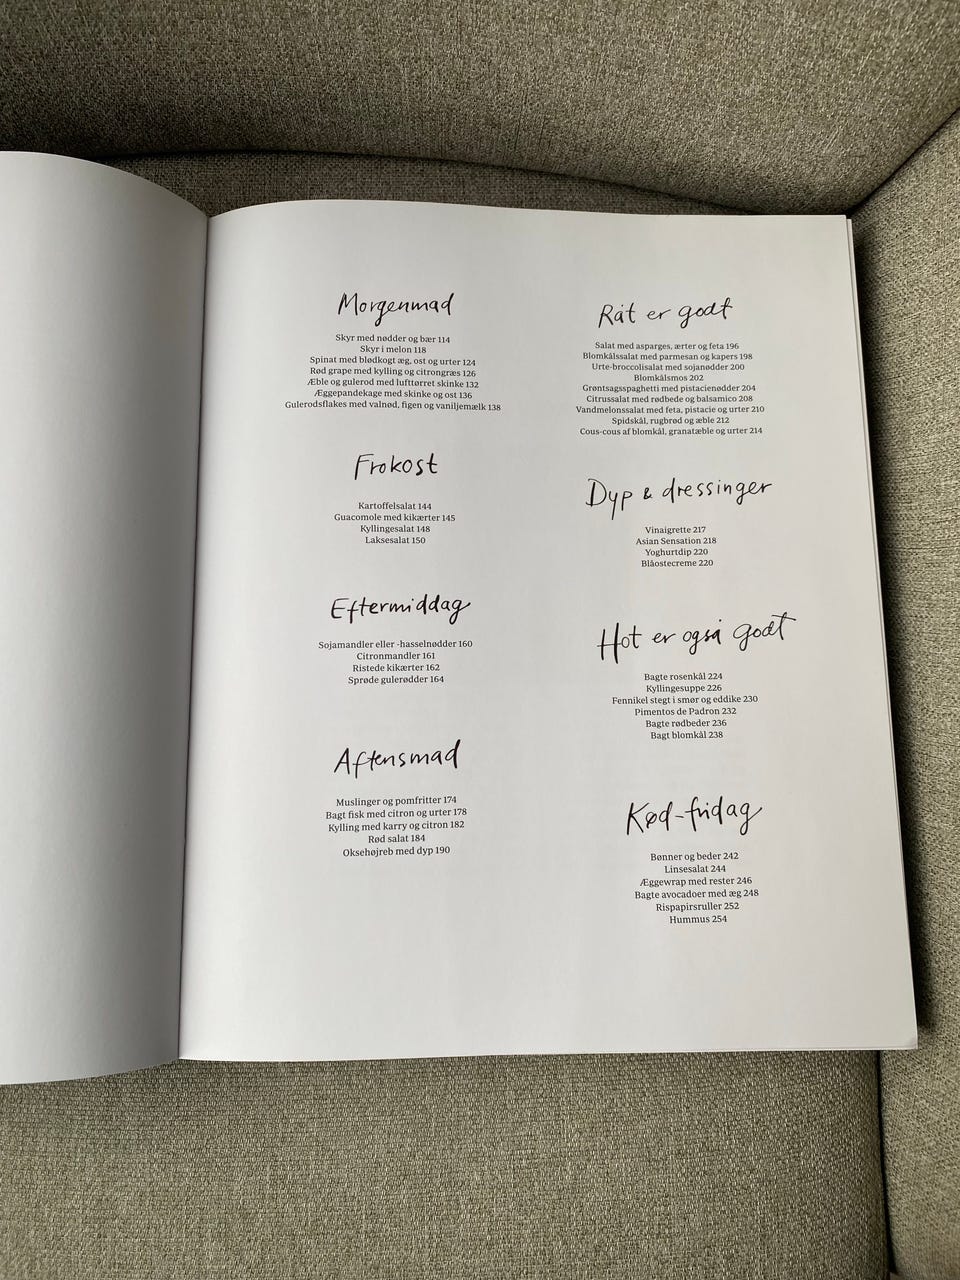 Morgenmad
Skyr med nødder og bær 114
Skyr i melon 118
Spinat med blødkogt æg, ost og urter 124
Rød grape med kylling og citrongræs 126
Æble og gulerod med lufttørret skinke 132
Æggepandekage med skinke og ost 136
Gulerodsflakes med valnød, figen og vaniljemælk 138
Frokost
Kartoffelsalat 144
Guacomole med kikærter 145
Kyllingesalat 148
Laksesalat 150
Eftermiddag
Sojamandler eller -hasselnødder 160
Citronmandler 161
Ristede kikærter 162
Sprøde gulerødder 164
Aftensmad
Muslinger og pomfritter 174
Bagt fisk med citron og urter 178
Kylling med karry og citron 182
Rød salat 184
Oksehøjreb med dyp 190
Råt er godt
Salat med asparges, ærter og feta 196
Blomkålssalat med parmesan og kapers 198
Urte-broccolisalat med sojanødder 200
Blomkålsmos 202
Grøntsagsspaghetti med pistacienødder 204
Citrussalat med rødbede og balsamico 208
Vandmelonssalat med feta, pistacie og urter 210
Spidskål, rugbrød og æble 212
Cous-cous af blomkål, granatæble og urter 214
Dyp & dressinger
Vinaigrette 217
Asian Sensation 218
Yoghurtdip 220
Blåostecreme 220
Hot er også godt
Bagte rosenkål 224
Kyllingesuppe 226
Fennikel stegt i smør og eddike 230
Pimentos de Padron 232
Bagte rødbeder 236
Bagt blomkål 238
Kød-fridag
Bønner og beder 242
Linsesalat 244
Æggewrap med rester 246
Bagte avocadoer med æg 248
Rispapirsruller 252
Hummus 254